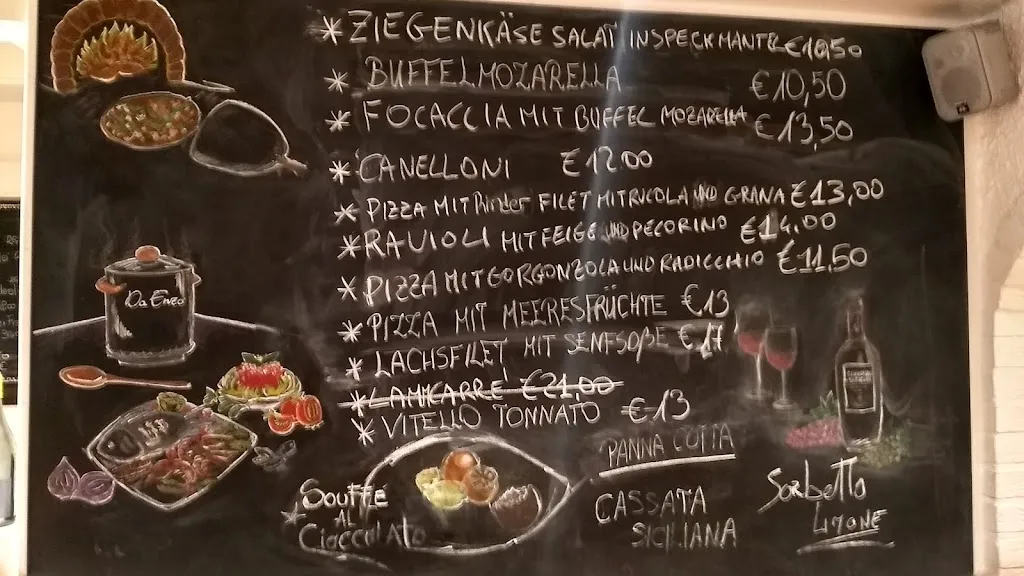 * ZIEGENKÄSE SALAT IN SPECKMANTEL €10,50
* BUFFELMOZARELLA €10,50
* FOCACCIA MIT BUFFEL MOZARELLA €13,50
* CANELLONI €12.00
* PIZZA MIT Rinder FILET MIT RUCOLA UND GRANA €13,00
* RAVIOLI MIT FEIGE UND PECORINO €14.00
* PIZZA MIT GORGONZOLA UND RADICCHIO €11,50
* PIZZA MIT MEERESFRÜCHTE €13
* LACHSFILET MIT SENFSOßE €17
* LAMKARRÉ €21,00
* VITELLO TONNATO €13
Da Enzo
PANNA COTTA
* SOUFFE
AL
Ciaccolato
CASSATA
SICILIANA
Sorbetto
LIMONE